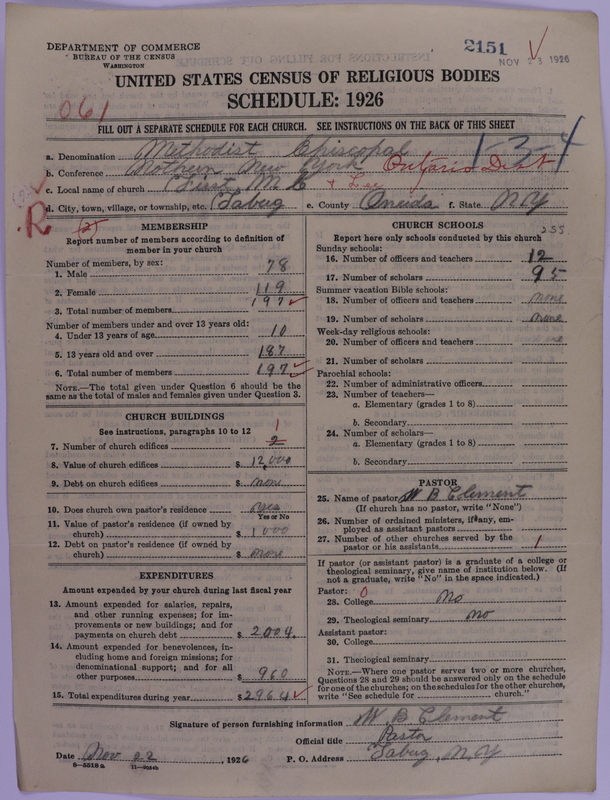 DEPARTMENT OF COMMERCE
BUREAU OF THE CENSUS
WASHINGTON
2151
NOV 23 1926
UNITED STATES CENSUS OF RELIGIOUS BODIES
SCHEDULE: 1926
061
FILL OUT A SEPARATE SCHEDULE FOR EACH CHURCH. SEE INSTRUCTIONS ON THE BACK OF THIS SHEET
1-3-4
a. Denomination Methodist Episcopal
b. Conference Northern New York Ontario Dist
c. Local name of church First M E + Lee
d. City, town, village, or township, etc. Taberg e. County Oneida f. State NY
R (2)
MEMBERSHIP
Report number of members according to definition of member in your church
Number of members, by sex:
1. Male 78
2. Female 119
3. Total number of members 197
Number of members under and over 13 years old:
4. Under 13 years of age 10
5. 13 years old and over 187
6. Total number of members 197
NOTE.—The total given under Question 6 should be the
same as the total of males and females given under Question 3.
CHURCH BUILDINGS
See instructions, paragraphs 10 to 12
1
7. Number of church edifices 2
8. Value of church edifices $ 12,000
9. Debt on church edifices $ none
10. Does church own pastor's residence yes
Yes or No
11. Value of pastor's residence (if owned by
church) $ 1000
12. Debt on pastor's residence (if owned by
church) $ none
EXPENDITURES
Amount expended by your church during last fiscal year
13. Amount expended for salaries, repairs,
and other running expenses; for im-
provements or new buildings; and for
payments on church debt $ 2004.
14. Amount expended for benevolences, in-
cluding home and foreign missions; for
denominational support; and for all
other purposes $ 960
15. Total expenditures during year $ 2964
CHURCH SCHOOLS
255
Report here only schools conducted by this church
Sunday schools:
16. Number of officers and teachers 12
17. Number of scholars 95
Summer vacation Bible schools:
18. Number of officers and teachers none
19. Number of scholars none
Week-day religious schools:
20. Number of officers and teachers
21. Number of scholars
Parochial schools:
22. Number of administrative officers
23. Number of teachers—
a. Elementary (grades 1 to 8)
b. Secondary
24. Number of scholars—
a. Elementary (grades 1 to 8)
b. Secondary
PASTOR
25. Name of pastor W B Clement
(If church has no pastor, write "None")
26. Number of ordained ministers, if any, em-
ployed as assistant pastors
27. Number of other churches served by the
pastor or his assistants 1
If pastor (or assistant pastor) is a graduate of a college or
theological seminary, give name of institution below. (If
not a graduate, write "No" in the space indicated.)
Pastor: 0
28. College No
29. Theological seminary No
Assistant pastor:
30. College
31. Theological seminary
NOTE.—Where one pastor serves two or more churches,
Questions 28 and 29 should be answered only on the schedule
for one of the churches; on the schedules for the other churches,
write "See schedule for church."
Signature of person furnishing information W B Clement
Official title Pastor
Date Nov 22, 1926 P. O. Address Taberg, N. Y
8-5518a 11-9064b